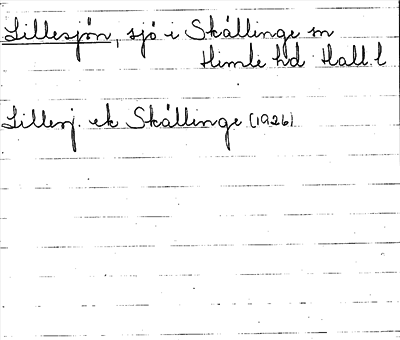 Lillesjön, sjö i Skällinge sn
Himle hd Hall. l
Lillesj. ek Skällinge (1926)